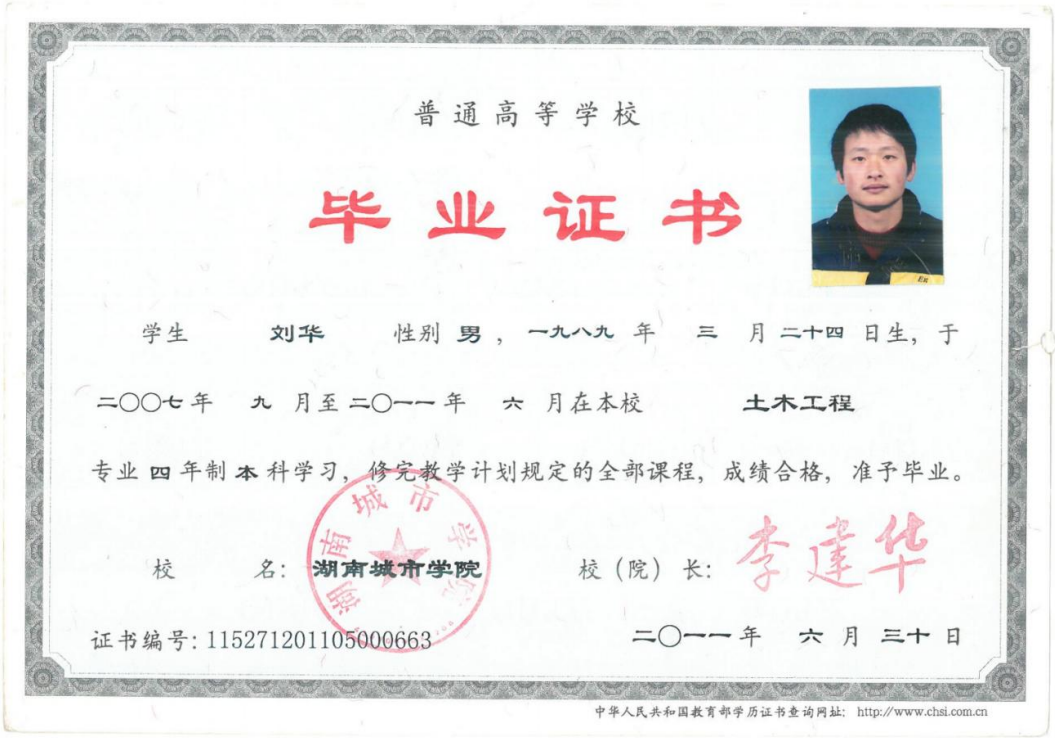 普通高等学校
毕业证书
学生 刘华 性别 男 ，一九八九 年 三 月 二十四 日生，于
二〇〇七年 九 月至 二〇一一 年 六 月在本校 土木工程
专业 四 年制 本 科学习，修完教学计划规定的全部课程，成绩合格，准予毕业。
湖南城市学院
校 名：湖南城市学院 校（院）长：李建华
证书编号：115271201105000663 二〇一一 年 六 月 三十 日
中华人民共和国教育部学历证书查询网址： http://www.chsi.com.cn